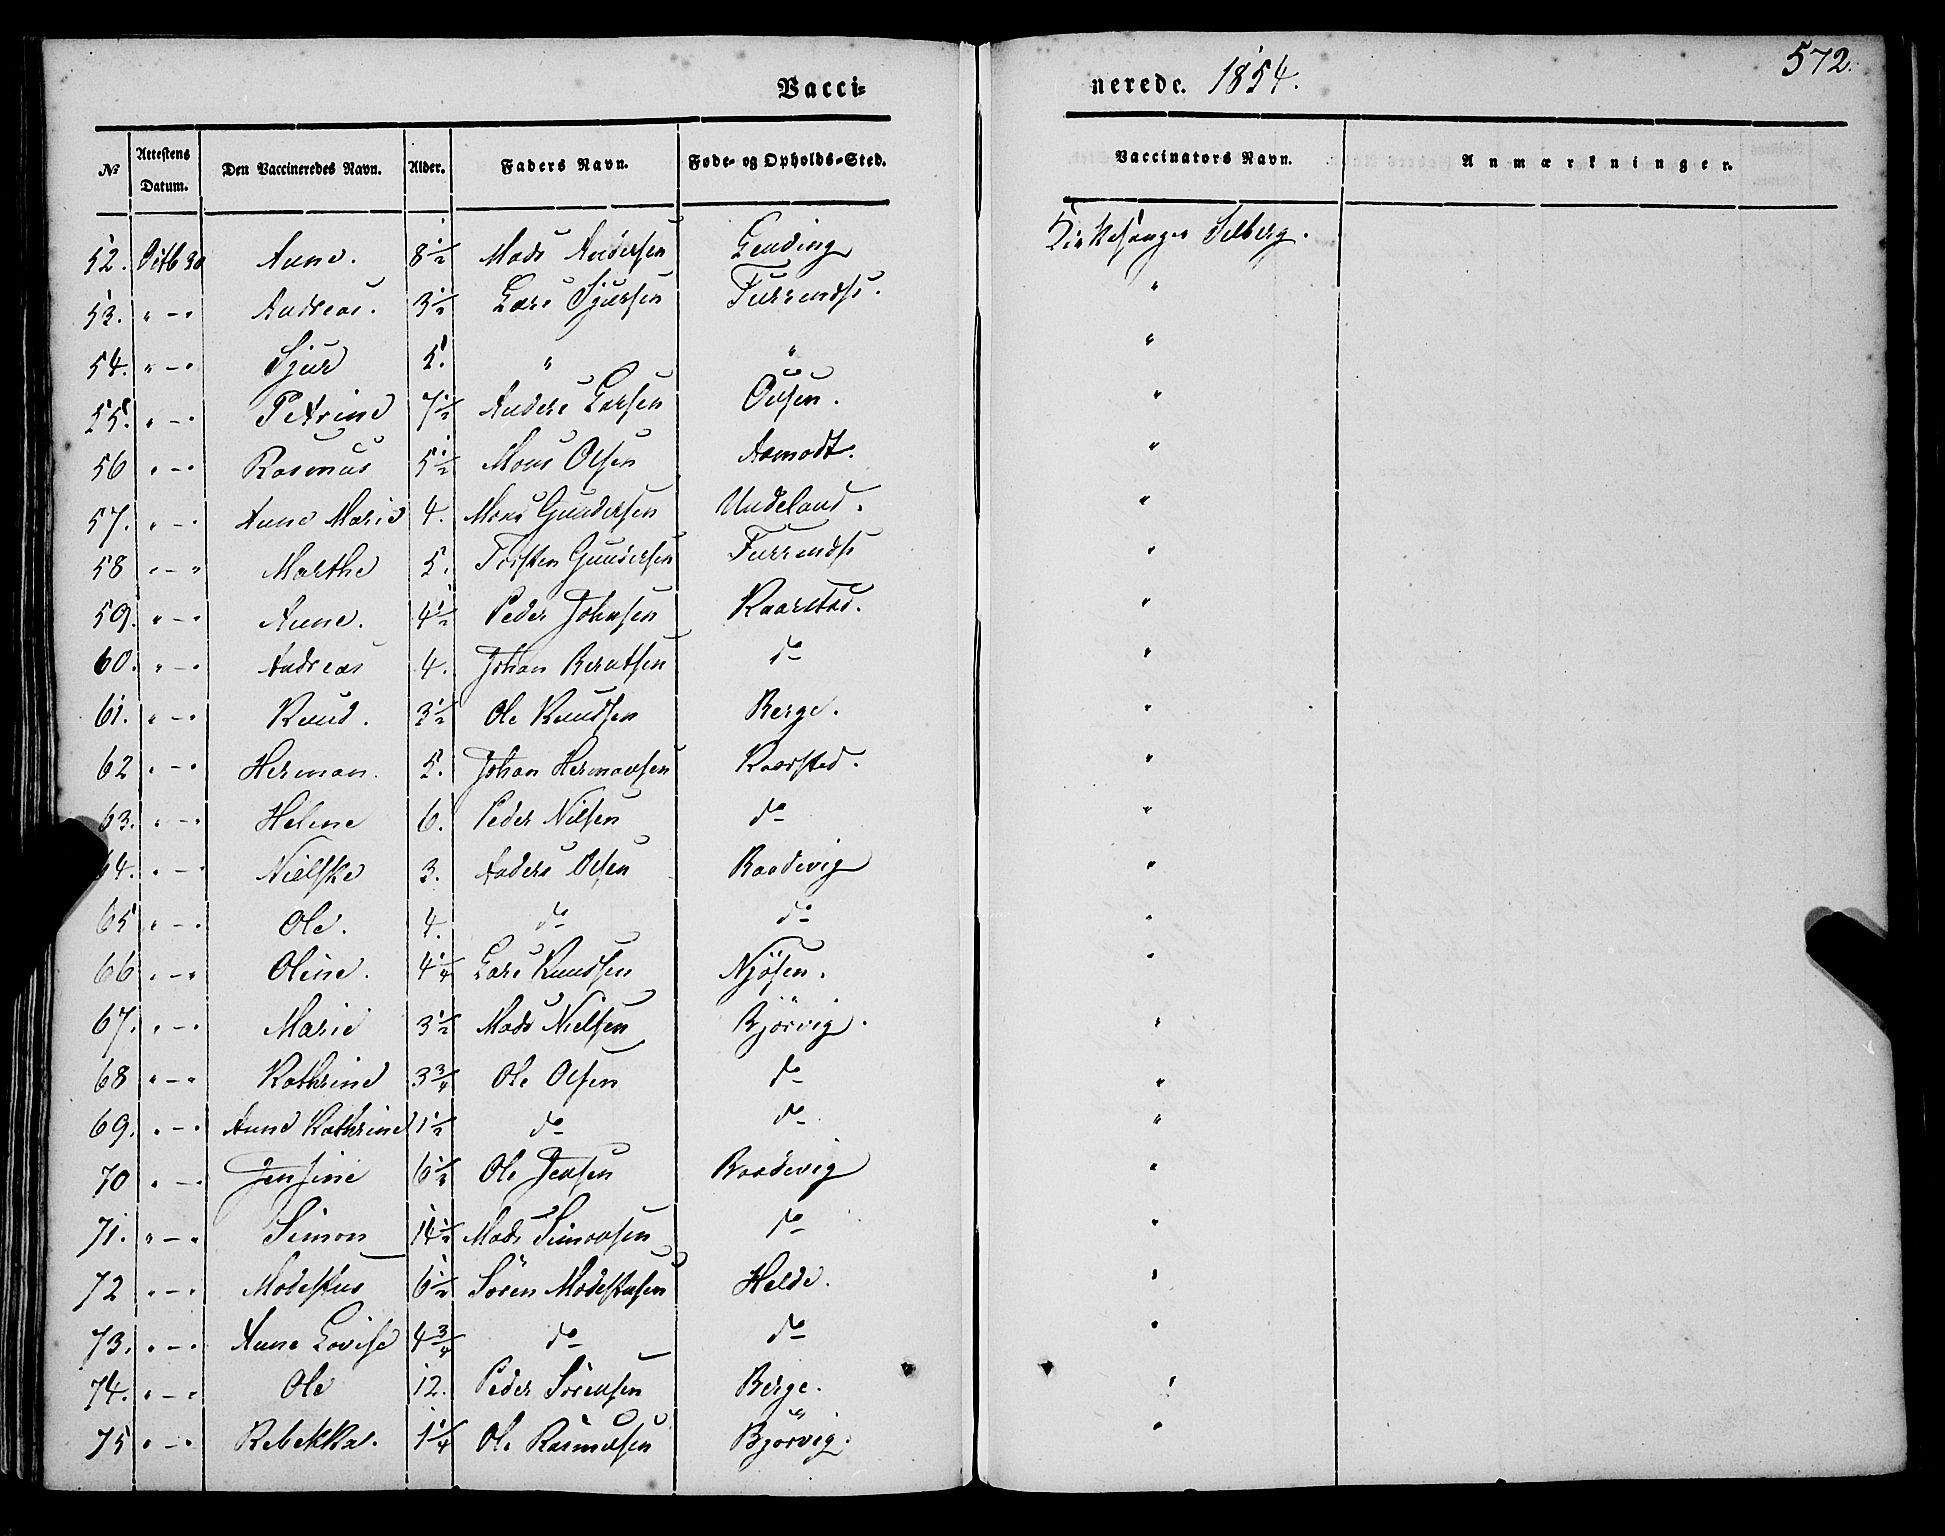 572.
Vacci= nerede. 1854.
№ | Attestens Datum. | Den Vaccineredes Navn. | Alder. | Faders Navn. | Føde- og Opholds-Sted. | Vaccinators Navn. | Anmærkninger.
52. | Octb 30 | Anne. | 8 1/2 | Mads Andersen | | Kirkesanger Selberg.
53. | " – " | Andreas. | 3 1/2 | Lars Sjursen | | "
54. | " – " | Sjur | 5. | " | " | "
55. | " – " | Petrine | 7 1/2 | Anders Larsen | | "
56 | " – " | Rasmus | 5 1/2 | Mons Olsen | Aamodt. | "
57. | " – " | Anne Marie | 4. | Mons Gundersen | Undeland. | "
58 | " – " | Marthe | 5. | Torsten Gundersen | | "
59. | " – " | Anne. | 4 1/2 | Peder Johnsen | Kaarstad. | "
60. | " – " | Andreas | 4. | Johan Berntsen | do | "
61. | " – " | Knud. | 3 1/2 | Ole Knudsen | Berge. | "
62 | " – " | Herman. | 5. | Johan Hermansen | Kaarsted. | "
63. | " – " | Helene | 6. | Peder Nilsen | do | "
64. | " – " | Nielske | 3. | Anders Olsen | Baadevig | "
65 | " – " | Ole. | 4. | do | do | "
66 | " – " | Oline. | 4 1/4 | Lars Knudsen | Njøsen. | "
67. | " – " | Marie | 3 1/2 | Mads Nielsen | Bjørvig. | "
68 | " – " | Kathrine | 3 3/4 | Ole Olsen | do | "
69. | " – " | Anne Kathrine | 1 1/2 | do | do | "
70 | " – " | Jensine | 6 1/2 | Ole Jensen | Baadevig | "
71. | " – " | Simon | 14 1/2 | Mads Simonsen | do | "
72 | " – " | Modestus | 6 1/2 | Sören Modestusen | Helde. | "
73. | " – " | Anne Lovise | 4 3/4 | do | do | "
74. | " – " | Ole | 12. | Peder Sörensen | Berge. | "
75 | " – " | Rebekka. | 1 1/4 | Ole Rasmusen | Bjørvig. | "